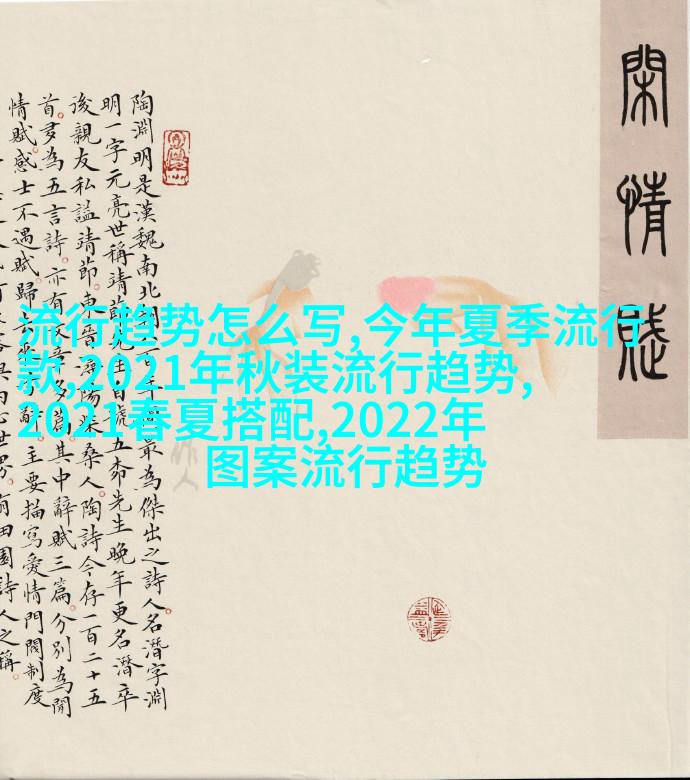 閑情賦
陶淵明是漢魏南北最為傑出之詩人名潛字淵
明一字元亮世稱靖節先生自號五柳先生晚年更名潛卒
後親友私謚靖節東晉潯陽柴桑人陶詩今存一百二十五
首多為五言詩亦有其中辭賦三篇分別為閒
情賦感士不遇賦歸去來兮辭主要描寫愛情門閥制度
田園詩人之稱
流行趋势怎么写,今年夏季流行
款,2021年秋装流行趋势,
2021春夏搭配,2022年
图案流行趋势